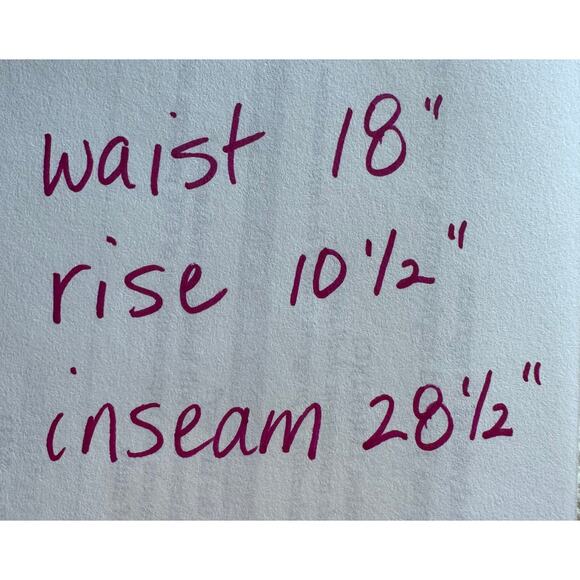 waist 18"
rise 10 1/2"
inseam 28 1/2"